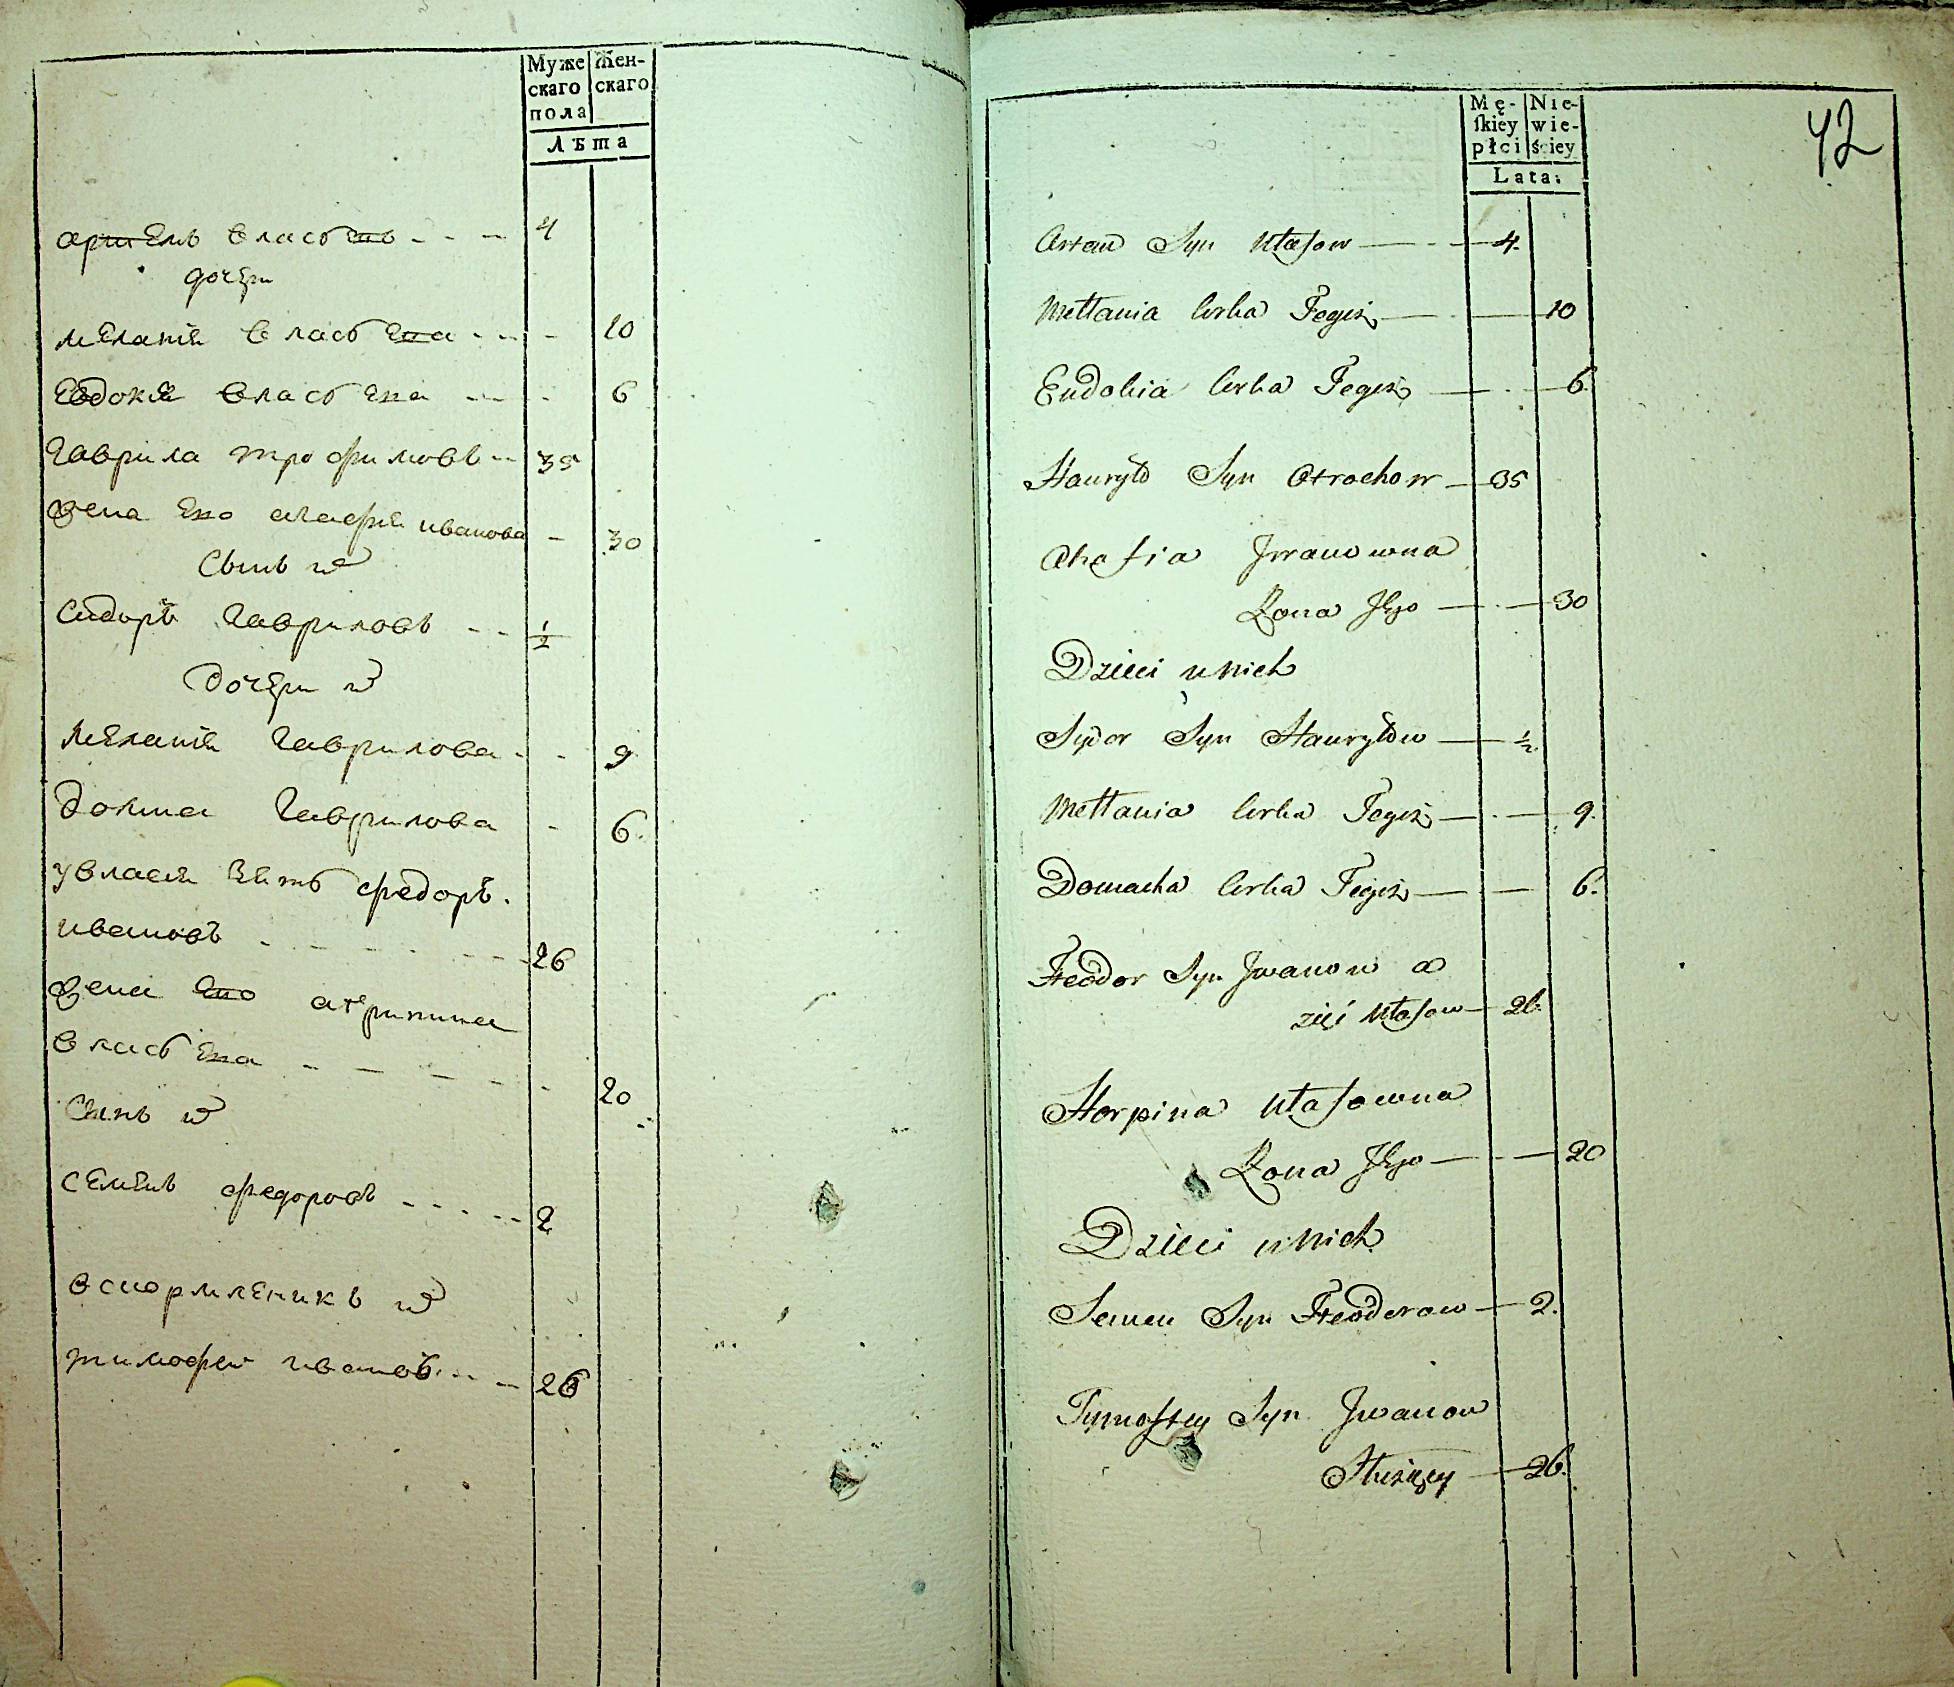 Муже
скаго
пола
Жен-
скаго
Лѣта
артемъ власовъ - - - 4
дочери
меланія власова - - - 10
Евдокія власова - - - 6
Гаврила трофимовъ - - 35
жена его агафия иванова - 30
Сынъ
Сидоръ Гавриловъ - - 1/2
Дочери
меланія Гаврилова - - 9
домна Гаврилова - 6
у власа зять федоръ
ивановъ - - - - - 26
жена его агрипина
власова - - - - - 20
Сынъ
семенъ федоровъ - - - - - 2
вскормленикъ
тимофеи ивановъ - - - 26
42
Mę-
skiey
płci
Nie-
wie-
ściey
Lata:
Syn Ułasow — - — 4.
Mełłania Corka Tegiż — - — 10
Eudokia Corka Tegiż — - — 6
Hauryło Syn Otrochow — 35
Ahafia Jwanowna
Żona Jego — - — 30
Dzieci u nich
Sydor Syn Hauryłow — 1/2.
Mełłania Corka Tegiż — - — 9.
Domacha Corka Tegiż — - — 6.
Feodor Syn Jwanow a
zięć Ułasow — 26.
Horpina Ułasowna
Żona Jego — - — 20
Dzieci u nich
Semen Syn Feodorow — 2.
Tymoftey Syn Jwanow
Służący — 26.